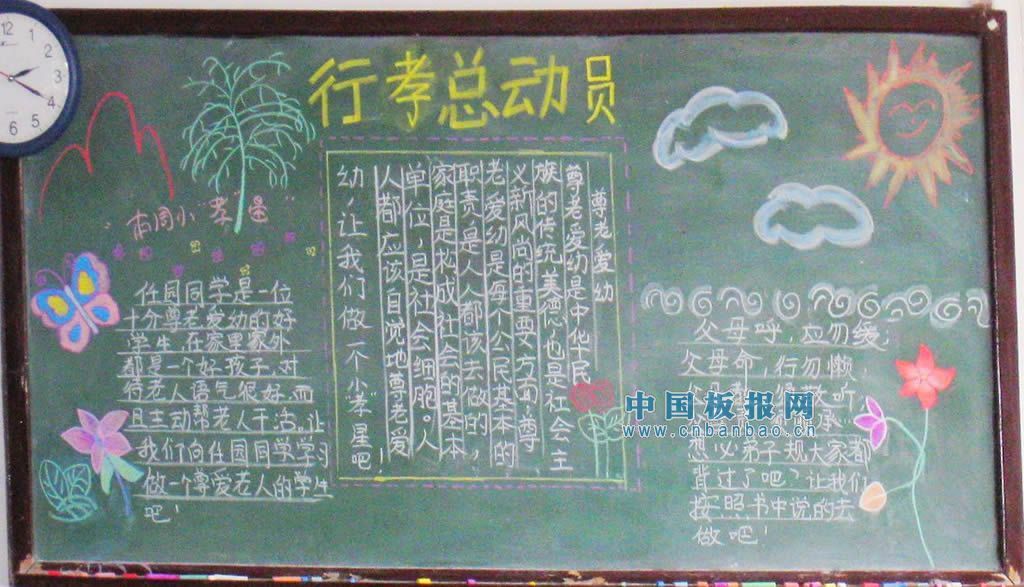 12
1
2
3
4
5
6
行孝总动员
本周小“孝”星
任园同学是一位
十分尊老爱幼的好
学生,在家里家外
都是一个好孩子,对
待老人语气很好,而
且主动帮老人干活。让
我们向任园同学学习
做一个尊爱老人的学生
吧!
尊老爱幼
尊老爱幼是中华民
族的传统美德,也是社会主
义新风尚的重要方面,尊
老爱幼是每个公民基本的
职责,是人人都该去做的,
家庭是构成社会的基本
单位,是社会细胞。人
人都应该自觉地尊老爱
幼,让我们做一个小“孝”星吧!
父母呼,应勿缓,
父母命,行勿懒,
父母教,须敬听,
想必弟子规大家都
背过了吧?让我们
按照书中说的去
做吧!
中国板报网
www.cnbanbao.cn